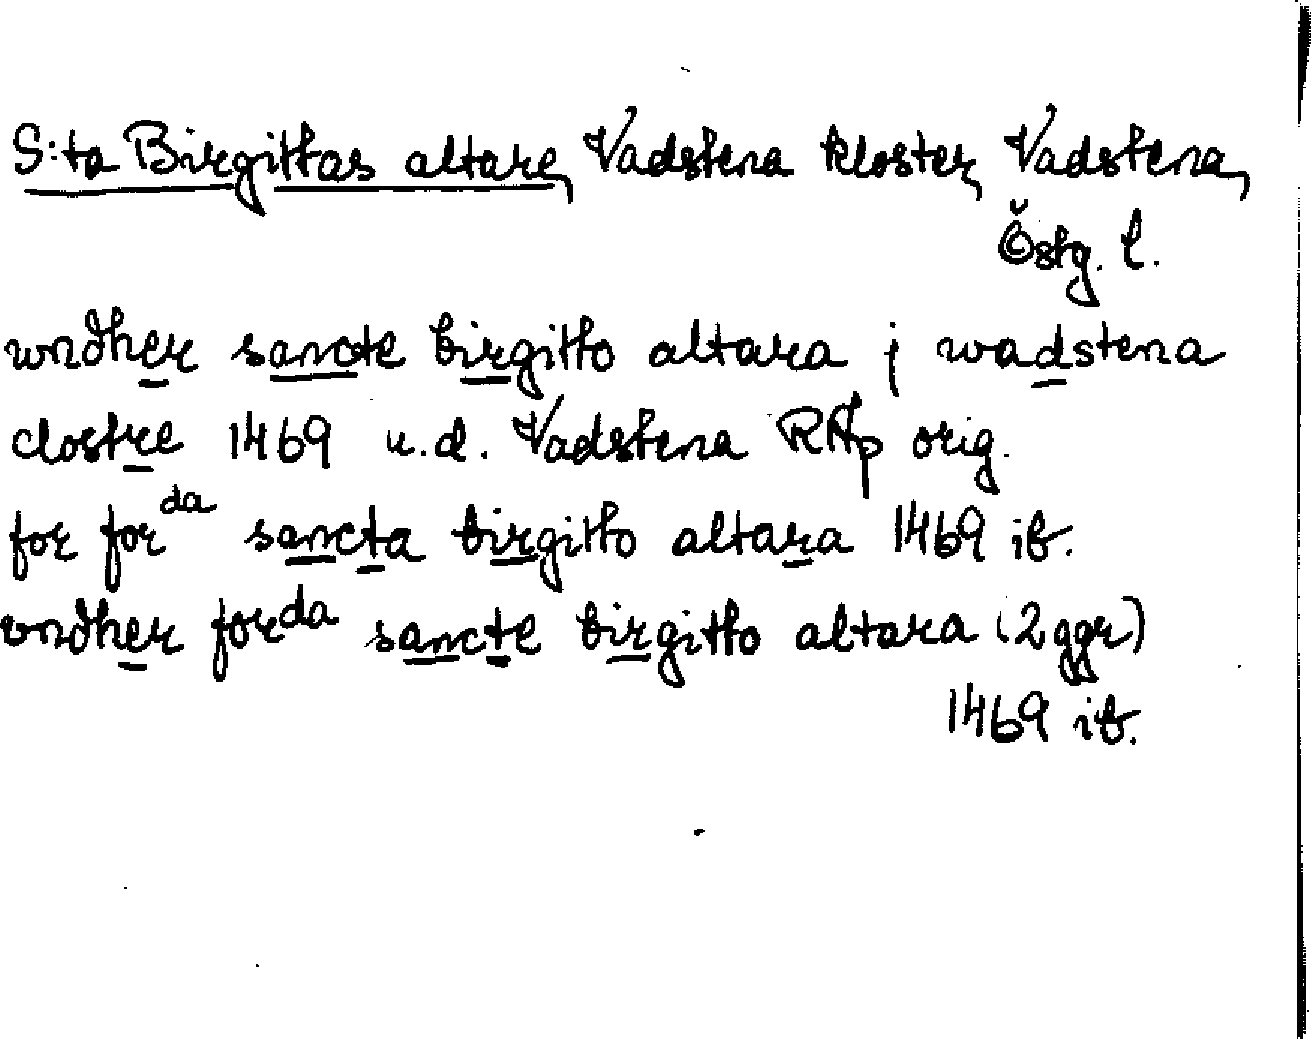 S:ta Birgittas altare, Vadstena kloster, Vadstena,
Östg. l.
wndher sancte birgitto altara j wadstena
clostre 1469 u.d. Vadstena RAp orig.
for for da sancta birgitto altara 1469 ib.
vndher forda sancte birgitto altara (2 ggr)
1469 ib.